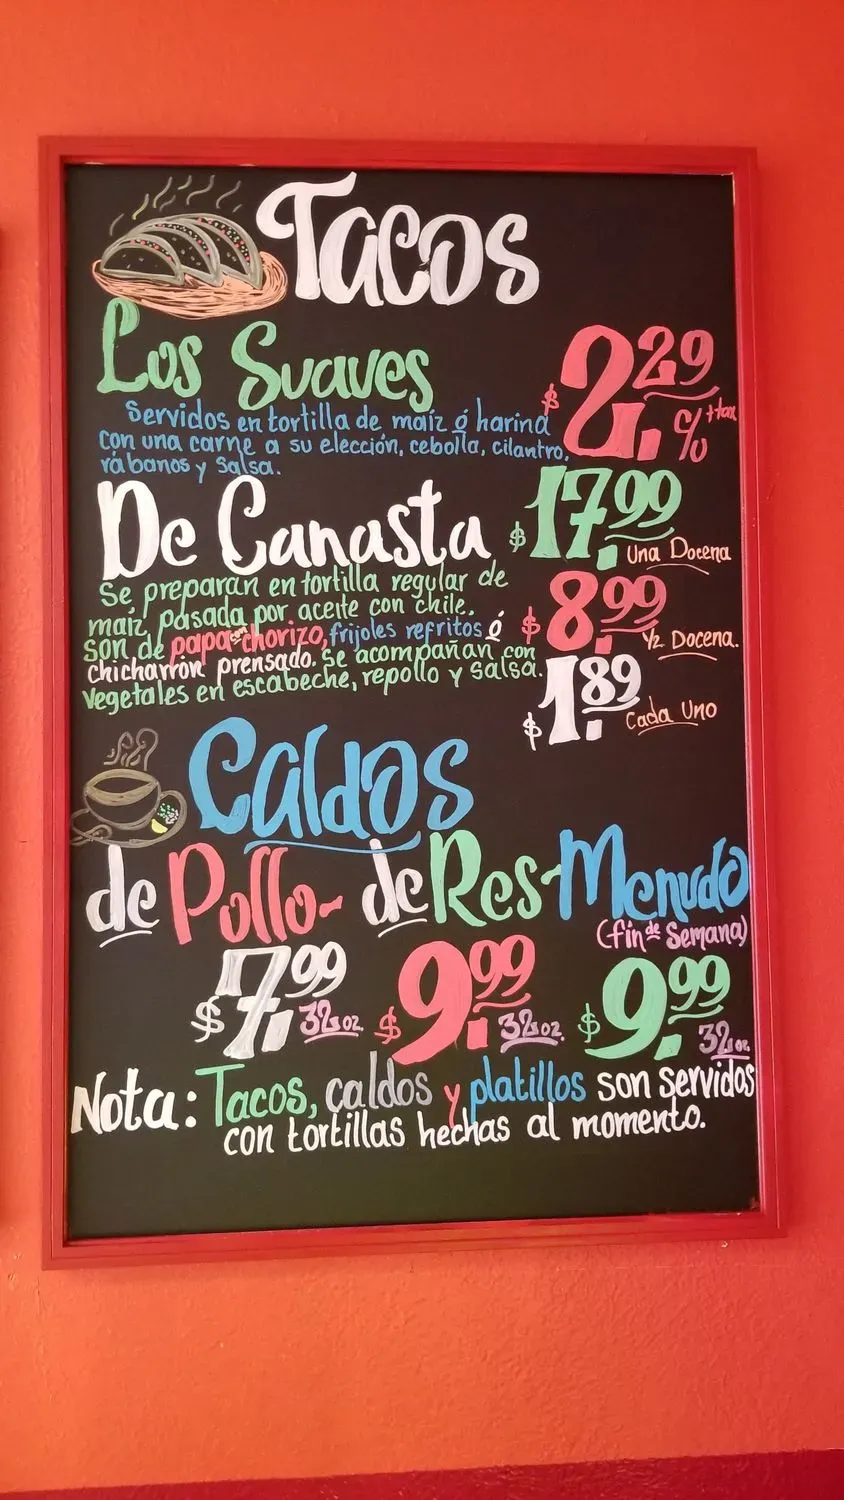 Tacos
Los Suaves
$2.29 c/u + tax
Servidos en tortilla de maíz ó harina
con una carne a su elección, cebolla, cilantro,
rábanos y salsa.
De Canasta
$17.99 Una Docena
Se preparan en tortilla regular de
maíz, pasada por aceite con chile.
son de papa con chorizo, frijoles refritos ó
chicharrón prensado. se acompañan con
vegetales en escabeche, repollo y salsa.
$8.99 1/2 Docena.
$1.89 Cada Uno
Caldos
de Pollo - de Res - Menudo
(fin de Semana)
$7.99 32 oz. $9.99 32 oz. $9.99 32 oz.
Nota: Tacos, caldos y platillos son servidos
con tortillas hechas al momento.